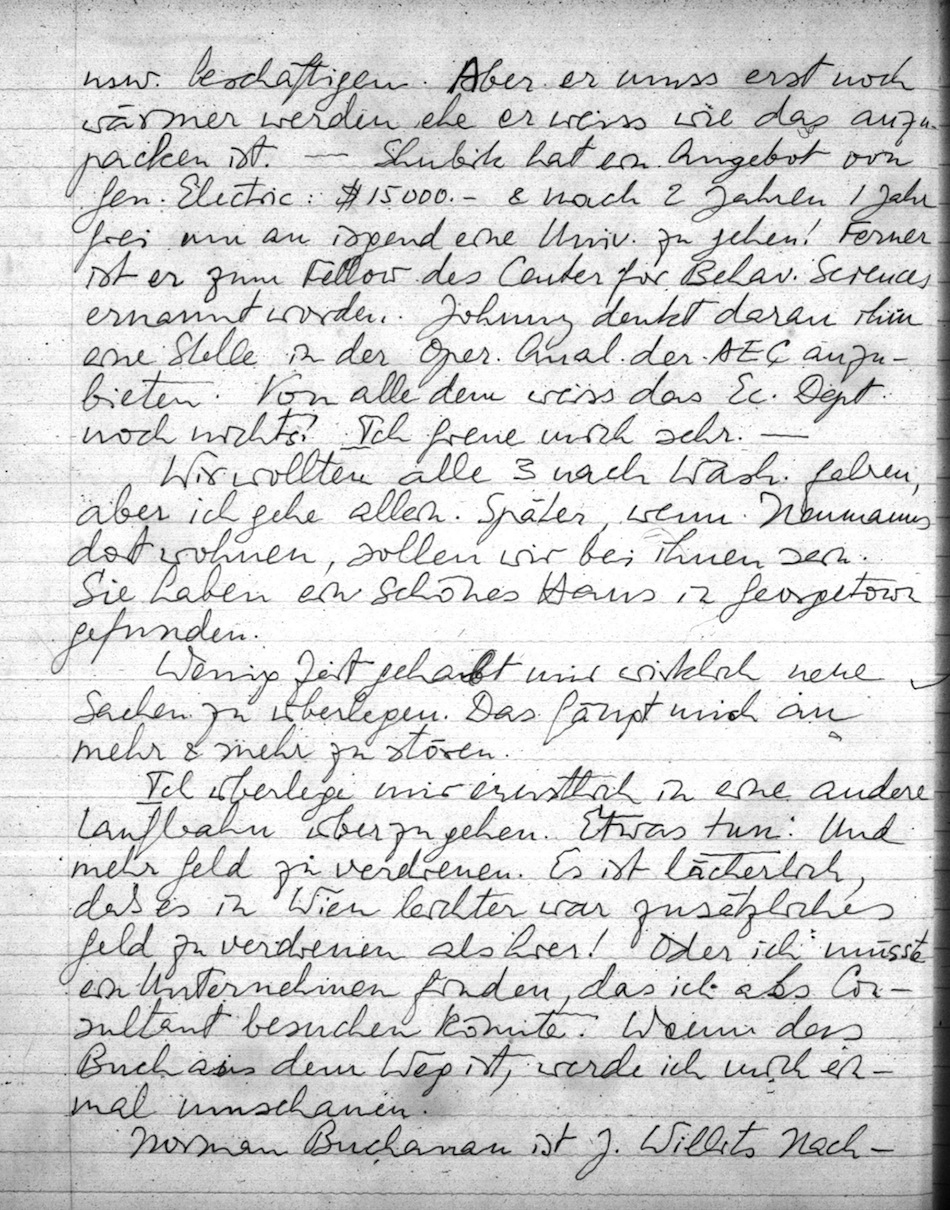 usw. beschäftigen. Aber er muss erst noch
wärmer werden ehe er weiss wie das anzu-
packen ist. — Shubik hat ein Angebot von
Gen. Electric: $15000.- & nach 2 Jahren 1 Jahr
frei um an irgend eine Univ. zu gehen! Ferner
ist er zum Fellow des Center for Behav. Sciences
ernannt worden. Johnny denkt daran ihm
eine Stelle in der Oper. Anal. der AEC anzu-
bieten. Von alle dem weiss das Ec. Dept.
noch nichts! Ich freue mich sehr. —
Wir wollten alle 3 nach Wash. fahren,
aber ich gehe allein. Später, wenn Neumanns
dort wohnen, sollen wir bei ihnen sein.
Sie haben ein schönes Haus in Georgetown
gefunden.
Wenig Zeit gehabt mir wirklich neue
Sachen zu überlegen. Das fängt mich an
mehr & mehr zu stören.
Ich überlege mir ernstlich in eine andere
Laufbahn überzugehen. Etwas tun. Und
mehr Geld zu verdienen. Es ist lächerlich,
dass es in Wien leichter war zusätzliches
Geld zu verdienen als hier! Oder ich müsste
ein Unternehmen finden, das ich als Con-
sultant besuchen könnte. Wenn das
Buch aus dem Weg ist, werde ich mich ein-
mal umschauen.
Norman Buchanan ist J. Willits Nach-